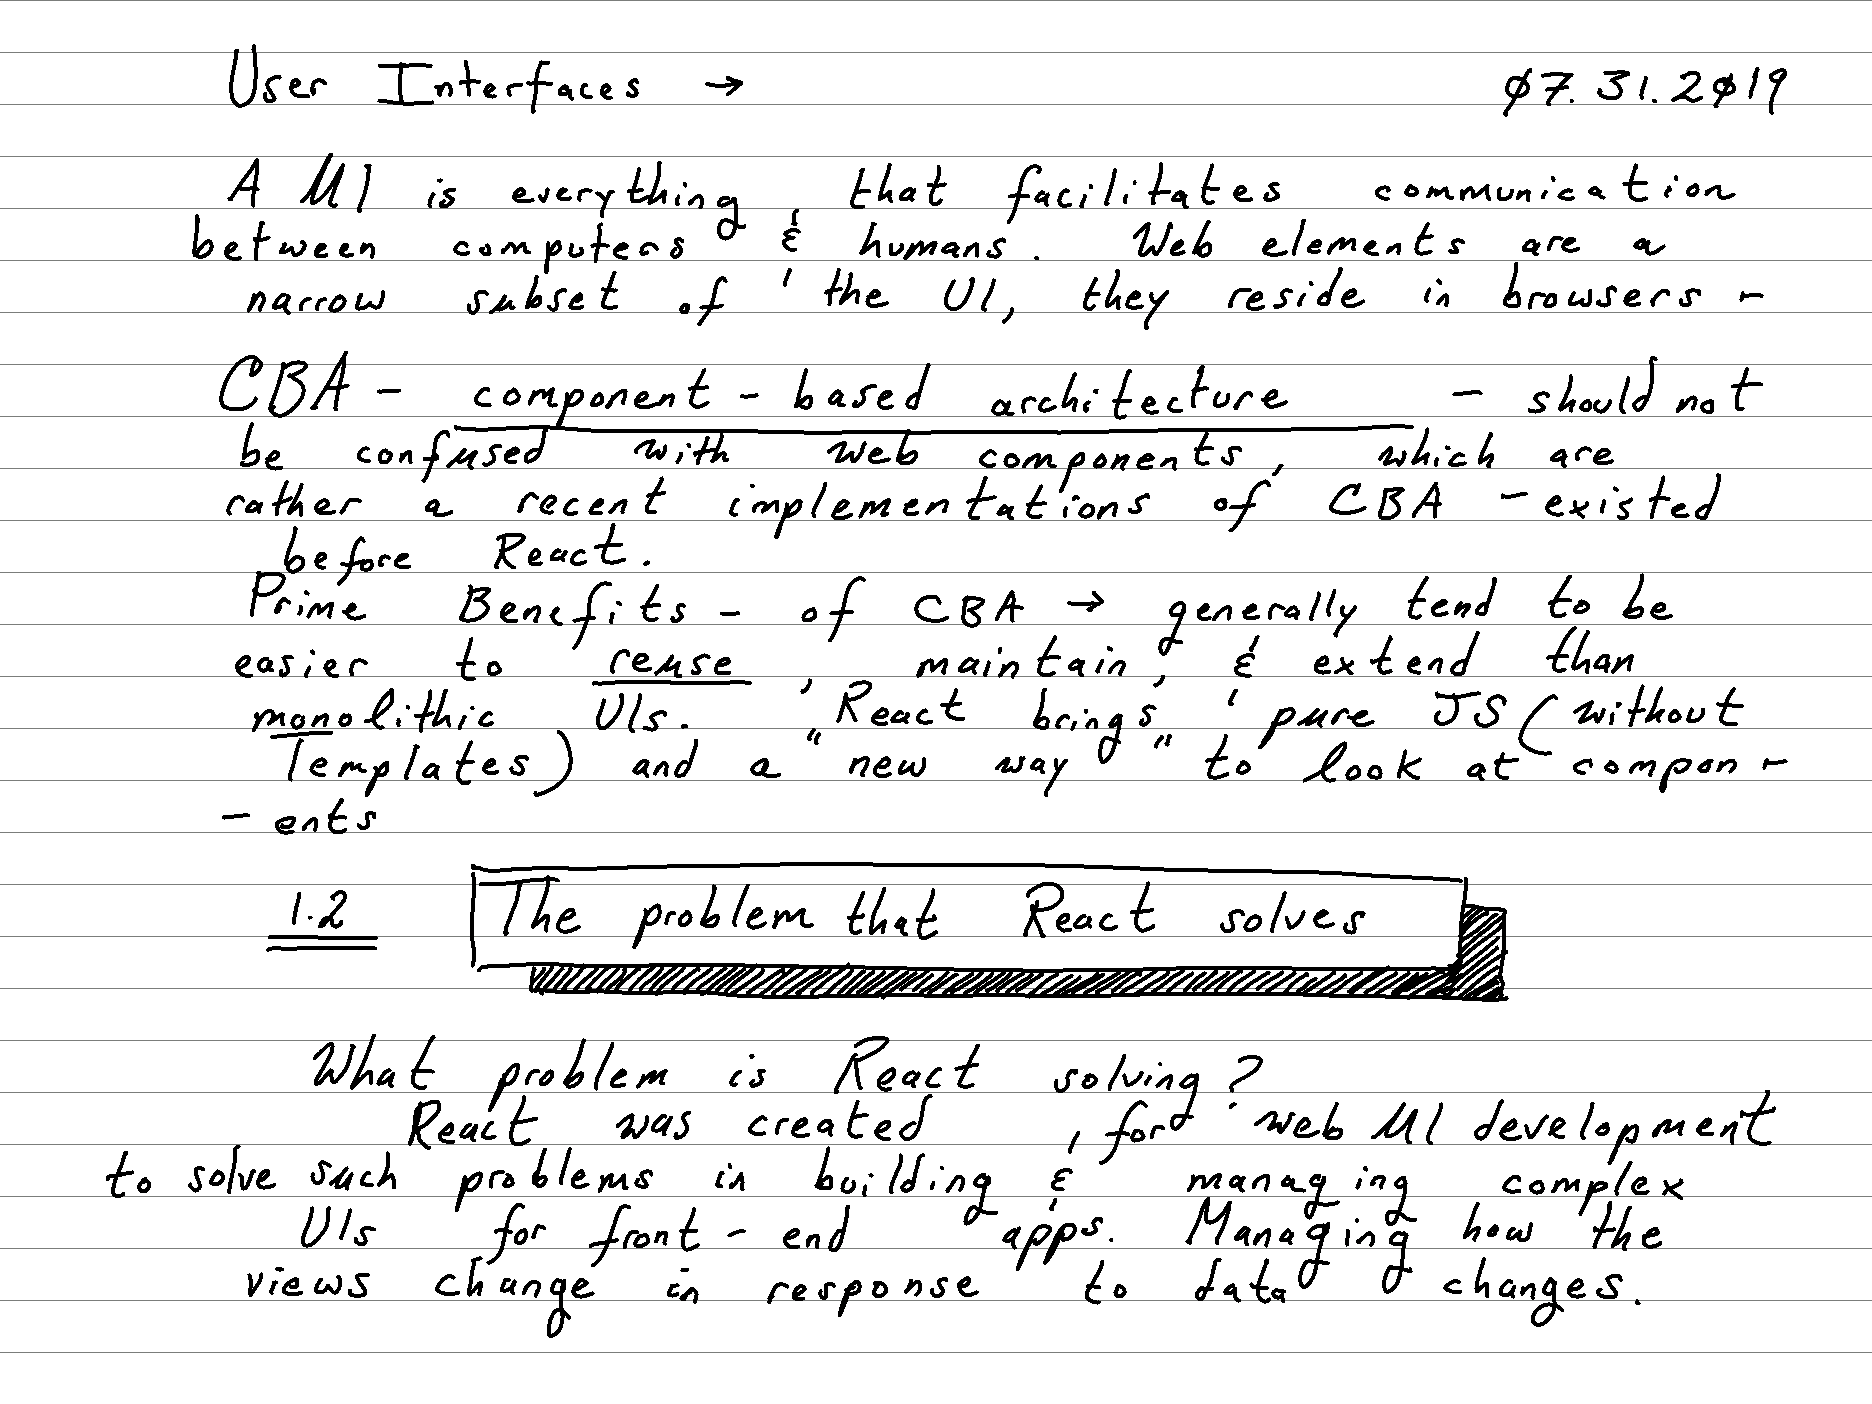 User Interfaces → 07.31.2019
A UI is everything that facilitates communication
between computers & humans. Web elements are a
narrow subset of the UI, they reside in browsers -
CBA - component - based architecture - should not
be confused with web components, which are
rather a recent implementations of CBA - existed
before React.
Prime Benefits - of CBA → generally tend to be
easier to reuse, maintain, & extend than
monolithic UIs. React brings pure JS (without
Templates) and a "new way" to look at compon -
- ents
1.2 The problem that React solves
What problem is React solving?
React was created, for web UI development
to solve such problems in building & managing complex
UIs for front - end apps. Managing how the
views change in response to data changes.